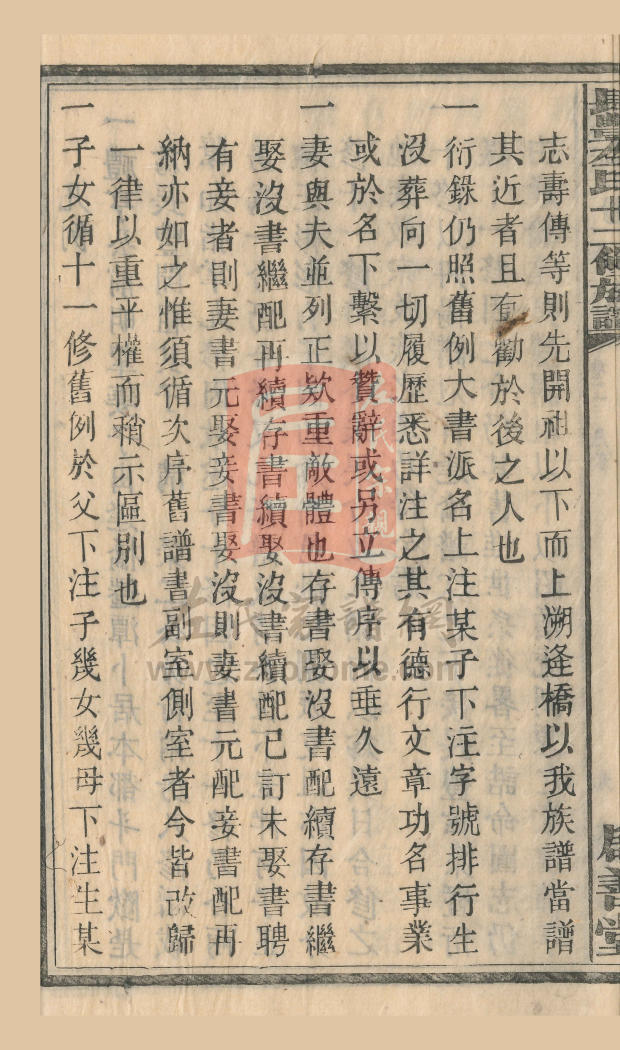 志壽傳等則先開祖以下而上溯逢橋以我族譜當譜
其近者且有勸於後之人也
一衍錄仍照舊例大書派名上注某子下注字號排行生
沒葬向一切履歷悉詳注之其有德行文章功名事業
或於名下繫以贊辭或另立傳序以垂久遠
一妻與夫並列正欵重敵體也存書娶沒書配續存書繼
娶沒書繼配再續存書續娶沒書續配已訂未娶書聘
有妾者則妻書元娶妾書娶沒則妻書元配妾書配再
納亦如之惟須循次序舊譜書副室側室者今皆改歸
一律以重平權而稍示區別也
一子女循十一修舊例於父下注子幾女幾母下注生某
莊氏家譜網
www.zhplhome.com